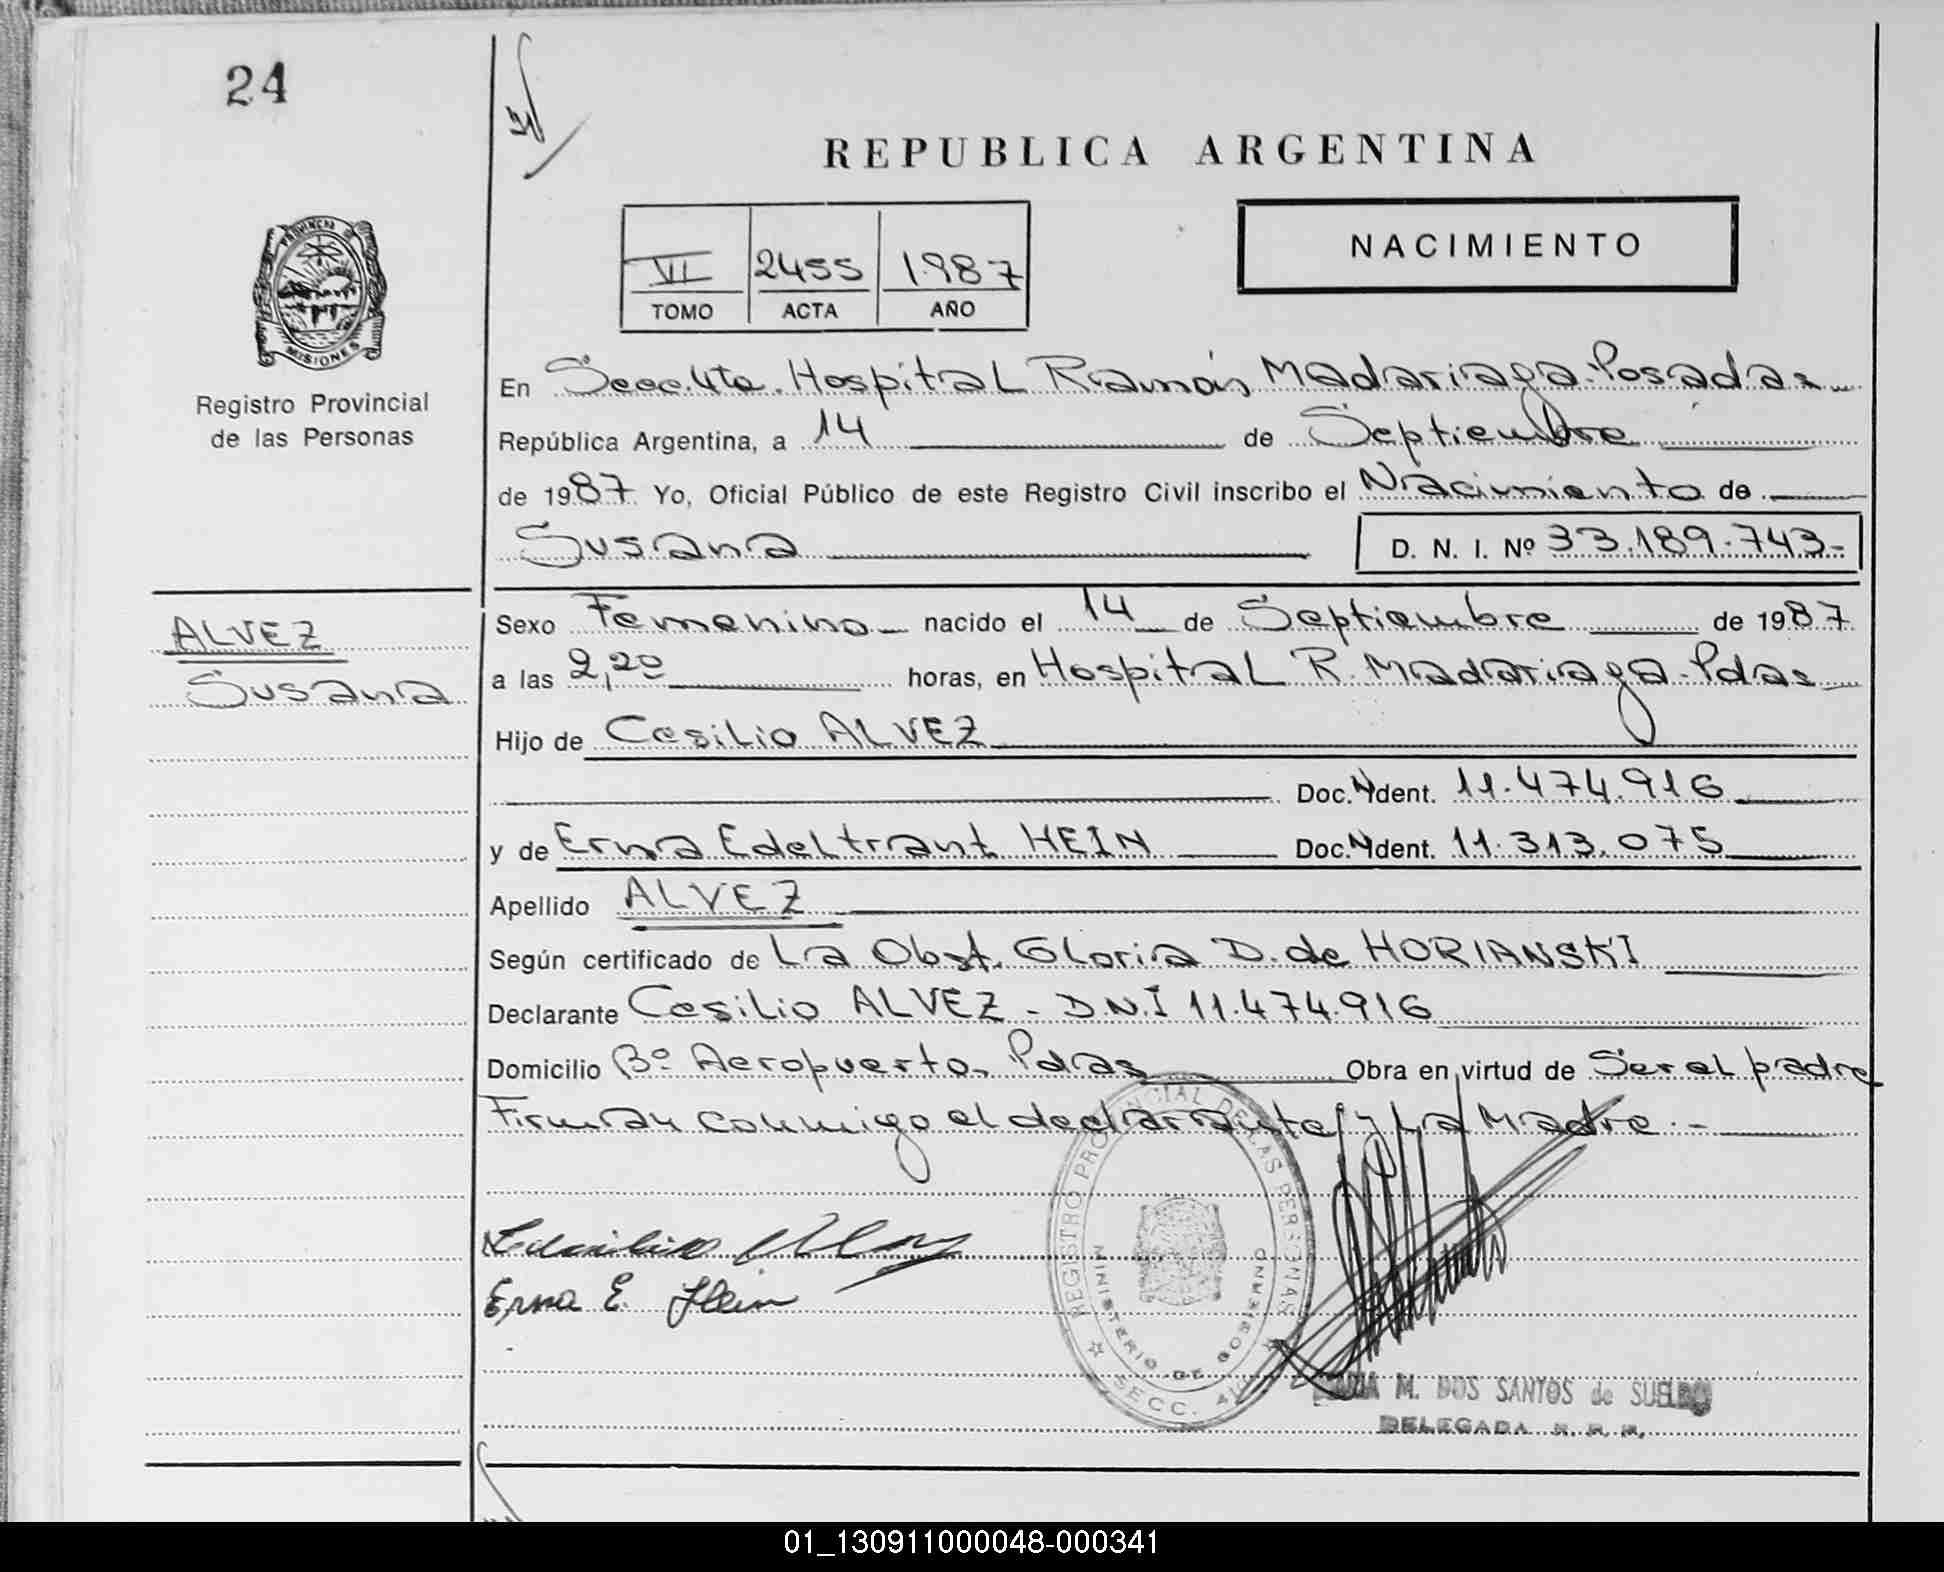 24
REPUBLICA ARGENTINA
NACIMIENTO
VI 2455 1987
TOMO ACTA AÑO
MISIONES
Registro Provincial
de las Personas
En Secc. 4ta. Hospital Ramón Madariaga. Posadas
República Argentina, a 14 de Septiembre
de 1987 Yo, Oficial Público de este Registro Civil inscribo el Nacimiento de
Susana
D. N. I. Nº 33.189.743-
ALVEZ
Susana
Sexo Femenino nacido el 14 de Septiembre de 1987
a las 2,20 horas, en Hospital R. Madariaga - Pdas
Hijo de Cesilio ALVEZ
Doc. Ident. 11.474.916
y de Erna Edeltrant HEIN Doc. Ident. 11.313.075
Apellido ALVEZ
Según certificado de La Obst. Gloria D. de HORIANSKI
Declarante Cesilio ALVEZ - D.N.I 11.474.916
Domicilio Bº Aeropuerto. Pdas Obra en virtud de Ser el padre
Firman conmigo el declarante y La Madre.-
Erna E. Hein
REGISTRO PROVINCIAL DE LAS PERSONAS
MINISTERIO DE GOBIERNO
SECC. 4
M. DOS SANTOS de SUELDO
DELEGADA R. P. P.
01_130911000048-000341